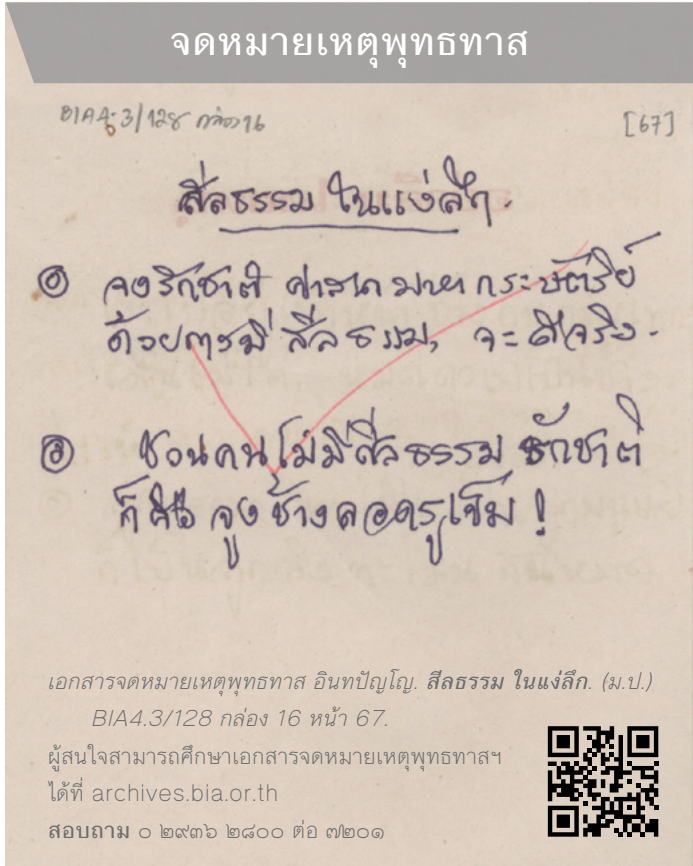 จดหมายเหตุพุทธทาส
BIA4.3/128 กล่อง 16
[67]
สีลธรรม ในแง่ลึก.
จงรักชาติ ศาสนา มหากระษัตริย์
ด้วยการมี สีลธรรม, จะดีจริง.
ชวนคนไม่มีสีลธรรม รักชาติ
ก็คือ จูงช้างลอดรูเข็ม!
เอกสารจดหมายเหตุพุทธทาส อินทปัญโญ. สีลธรรม ในแง่ลึก. (ม.ป.)
BIA4.3/128 กล่อง 16 หน้า 67.
ผู้สนใจสามารถศึกษาเอกสารจดหมายเหตุพุทธทาสฯ
ได้ที่ archives.bia.or.th
สอบถาม ๐ ๒๙๓๖ ๒๘๐๐ ต่อ ๗๒๐๑